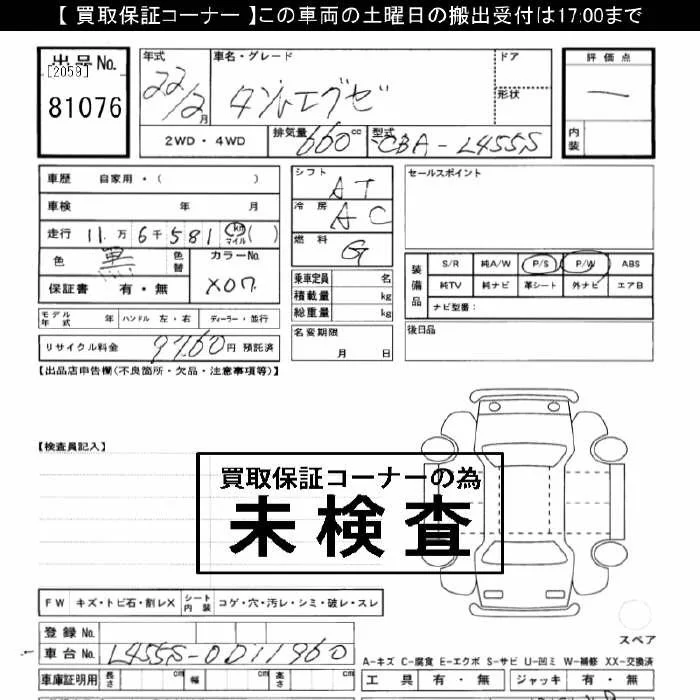 【 買取保証コーナー 】この車両の土曜日の搬出受付は17:00まで
出品No.
[2059]
81076
年式
22/12月
車名・グレード
タントエグゼ
ドア
形状
評価点
—
内装
2WD・4WD
排気量 660 cc
型式 CBA-L455S
車歴 自家用・( )
車検 年 月
走行 11万6千581 km マイル ( )
色 黒 色替
カラーNo. X07
保証書 有・無
モデル年式 年 ハンドル 左・右 ディーラー・並行
リサイクル料金 9760円 預託済
シフト AT
冷房 AC
燃料 G
乗車定員 名
積載量 kg
総重量 kg
名変期限
月 日
セールスポイント
装備品
S/R 純A/W P/S P/W ABS
純TV 純ナビ 革シート 外ナビ エアB
ナビ型番:
後日品
【出品店申告欄(不良箇所・欠品・注意事項等)】
【検査員記入】
買取保証コーナーの為
未検査
FW キズ・トビ石・割レX シート内装 コゲ・穴・汚レ・シミ・破レ・スレ
登録No.
車台No. L455S-0011960
スペア
車庫証明用 長さ cm 幅 cm 高さ cm
A-キズ C-腐食 E-エクボ S-サビ U-凹ミ W-補修 XX-交換済
工具 有・無 ジャッキ 有・無